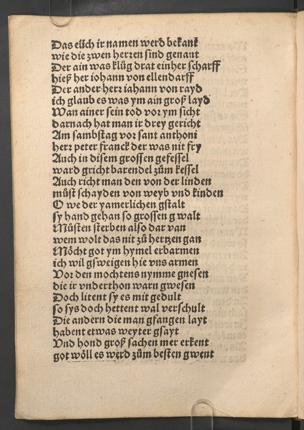 Das eüch ir namen werd bekant
wie die zwen herren sind genant
Der ain was klüg drat ein her scharff
hieß her iohann von ellendarff
Der ander herr iahann von rayd
ich glaub es was ym ain groß layd
Wan ainer sein tod vor ym sicht
darnach hat man ir drey gericht
Am sambstag vor sant anthoni
herr peter franck der was nit fry
Auch in disem grossen gefessel
ward gricht barendel zům kessel
Auch richt man den von der linden
můst schayden von weyb vnd kinden
O we der yamerlichen gstalt
sy hand gehan so grossen gwalt
Můsten sterben also dar van
wem wolt das nit zů hertzen gan
Möcht got ym hymel erbarmen
ich wil gsweigen hie vns armen
Vor den mochtens nymme gnesen
die ir vnderthon warn gwesen
Doch litent sy es mit gedult
so sys doch hettent wal verschult
Die andern die man gfangen layt
habent etwas weyter gsayt
Vnd hond groß sachen mer erkent
got wöll es werd zům besten gwent